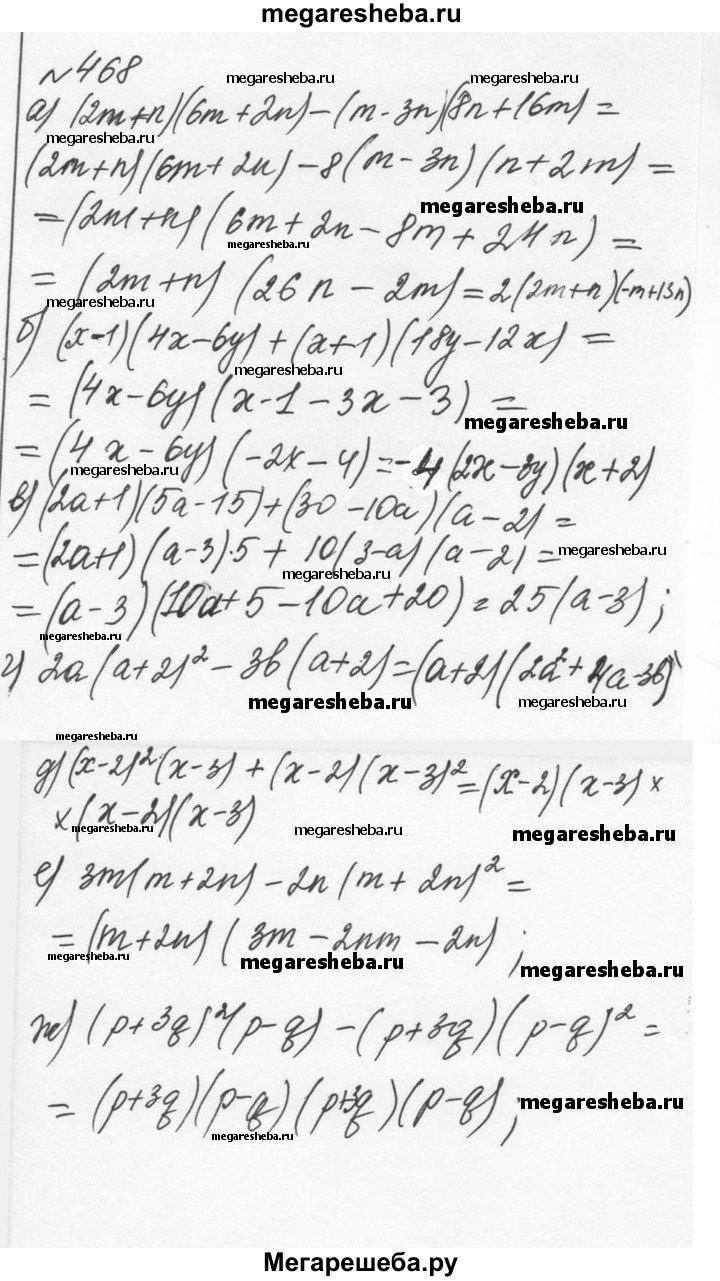 megaresheba.ru
№468
megaresheba.ru megaresheba.ru
а) (2m+n)(6m+2n)-(m-3n)(8n+16m)=
megaresheba.ru megaresheba.ru
(2m+n)(6m+2n)-8(m-3n)(n+2m)=
megaresheba.ru
=(2m+n)(6m+2n-8m+24n)=
megaresheba.ru
=(2m+n)(26n-2m)=2(2m+n)(-m+13n)
megaresheba.ru
б) (x-1)(4x-6y)+(x+1)(18y-12x)=
megaresheba.ru
=(4x-6y)(x-1-3x-3)=
megaresheba.ru
=(4x-6y)(-2x-4)=-4(2x-3y)(x+2)
megaresheba.ru megaresheba.ru
в) (2a+1)(5a-15)+(30-10a)(a-2)=
=(2a+1)(a-3)·5+10(3-a)(a-2)=
megaresheba.ru
megaresheba.ru
=(a-3)(10a+5-10a+20)=25(a-3);
megaresheba.ru
г) 2a(a+2)²-3b(a+2)=(a+2)(2a²+4a-3b)
megaresheba.ru megaresheba.ru
megaresheba.ru
д) (x-2)²(x-3)+(x-2)(x-3)²=(x-2)(x-3)×
×(x-2)(x-3)
megaresheba.ru megaresheba.ru megaresheba.ru
е) 3m(m+2n)-2n(m+2n)²=
=(m+2n)(3m-2nm-2n);
megaresheba.ru megaresheba.ru megaresheba.ru
ж) (p+3q)²(p-q)-(p+3q)(p-q)²=
=(p+3q)(p-q)(p+3q)(p-q);
megaresheba.ru
megaresheba.ru
Мегарешеба.ру